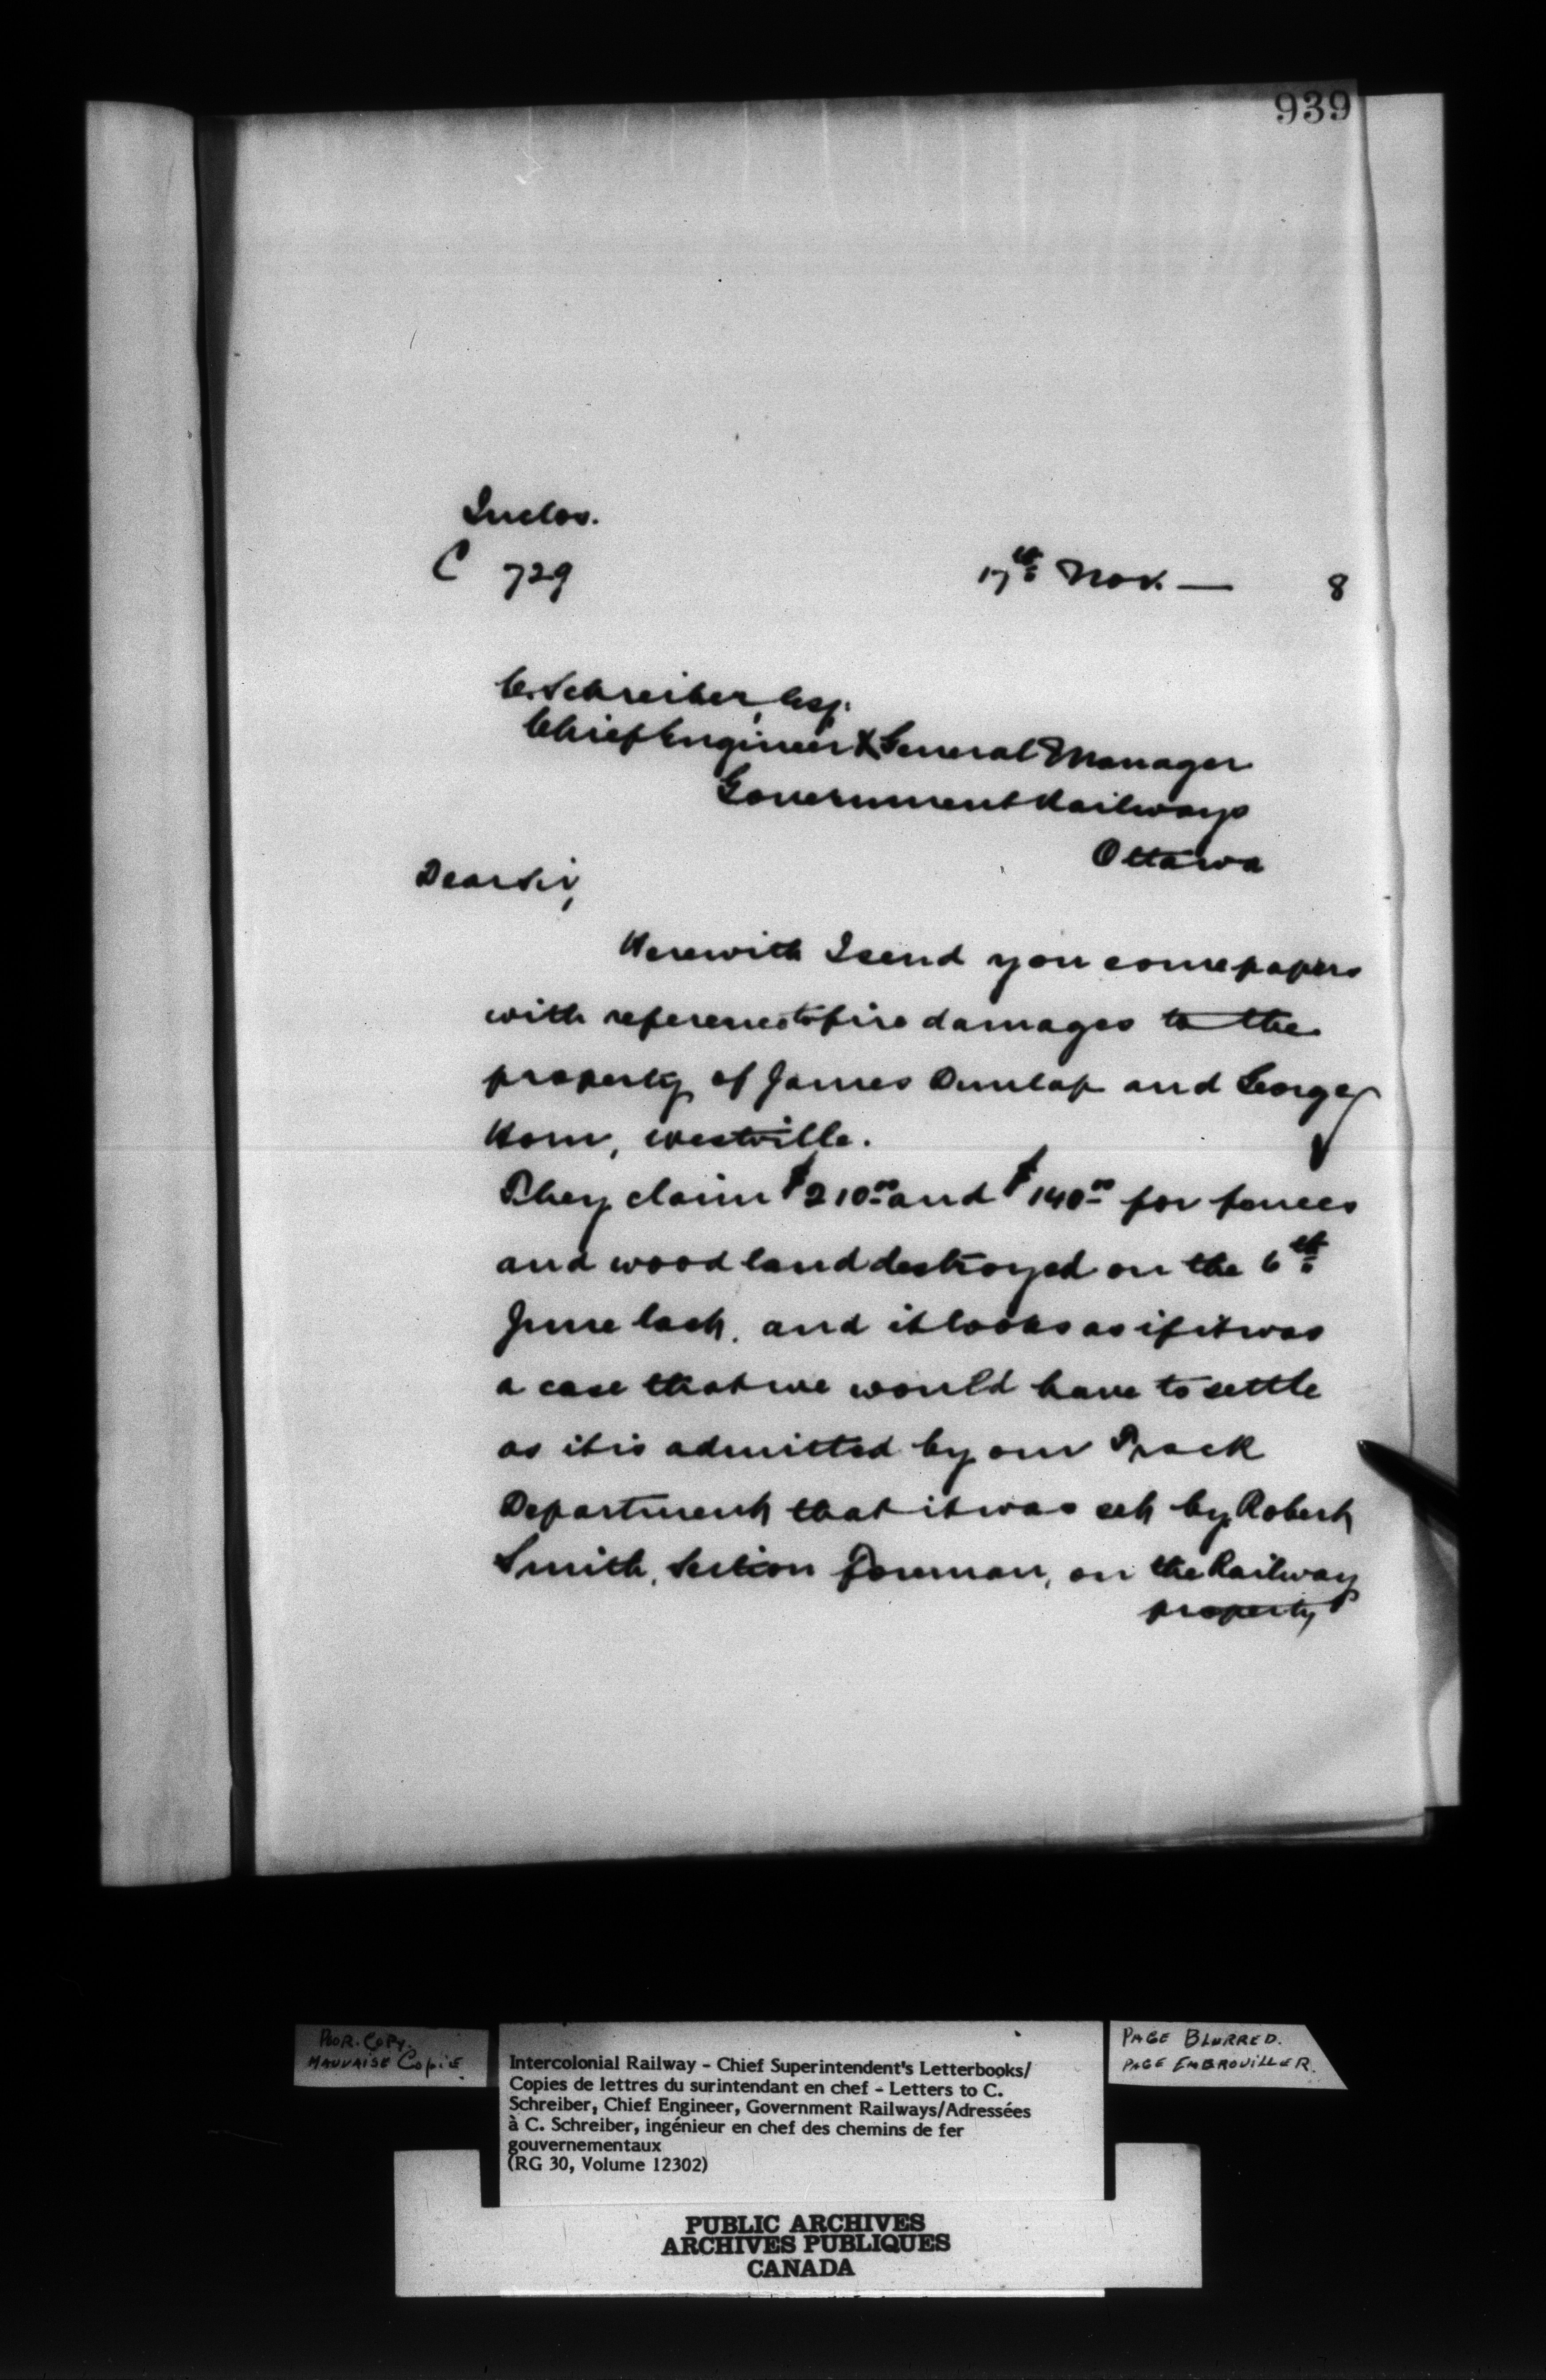 939
Inclos.
C 729
17th Nov. — 8
C. Schreiber, Esq.
Chief Engineer & General Manager
Government Railways
Ottawa
Dear Sir,
Herewith I send you some papers
with reference to fire damages to the
property of James Dunlap and George
Horn, Westville.
They claim $210.00 and $140.00 for fences
and wood land destroyed on the 6th
June last. and it looks as if it was
a case that we would have to settle
as it is admitted by our Track
Department that it was set by Robert
Smith, Section Foreman, on the Railway
property
POOR. COPY.
MAUVAISE COPIE
Intercolonial Railway - Chief Superintendent's Letterbooks/
Copies de lettres du surintendant en chef - Letters to C.
Schreiber, Chief Engineer, Government Railways/Adressées
à C. Schreiber, ingénieur en chef des chemins de fer
gouvernementaux
(RG 30, Volume 12302)
PAGE BLURRED.
PAGE EMBROUILLER.
PUBLIC ARCHIVES
ARCHIVES PUBLIQUES
CANADA